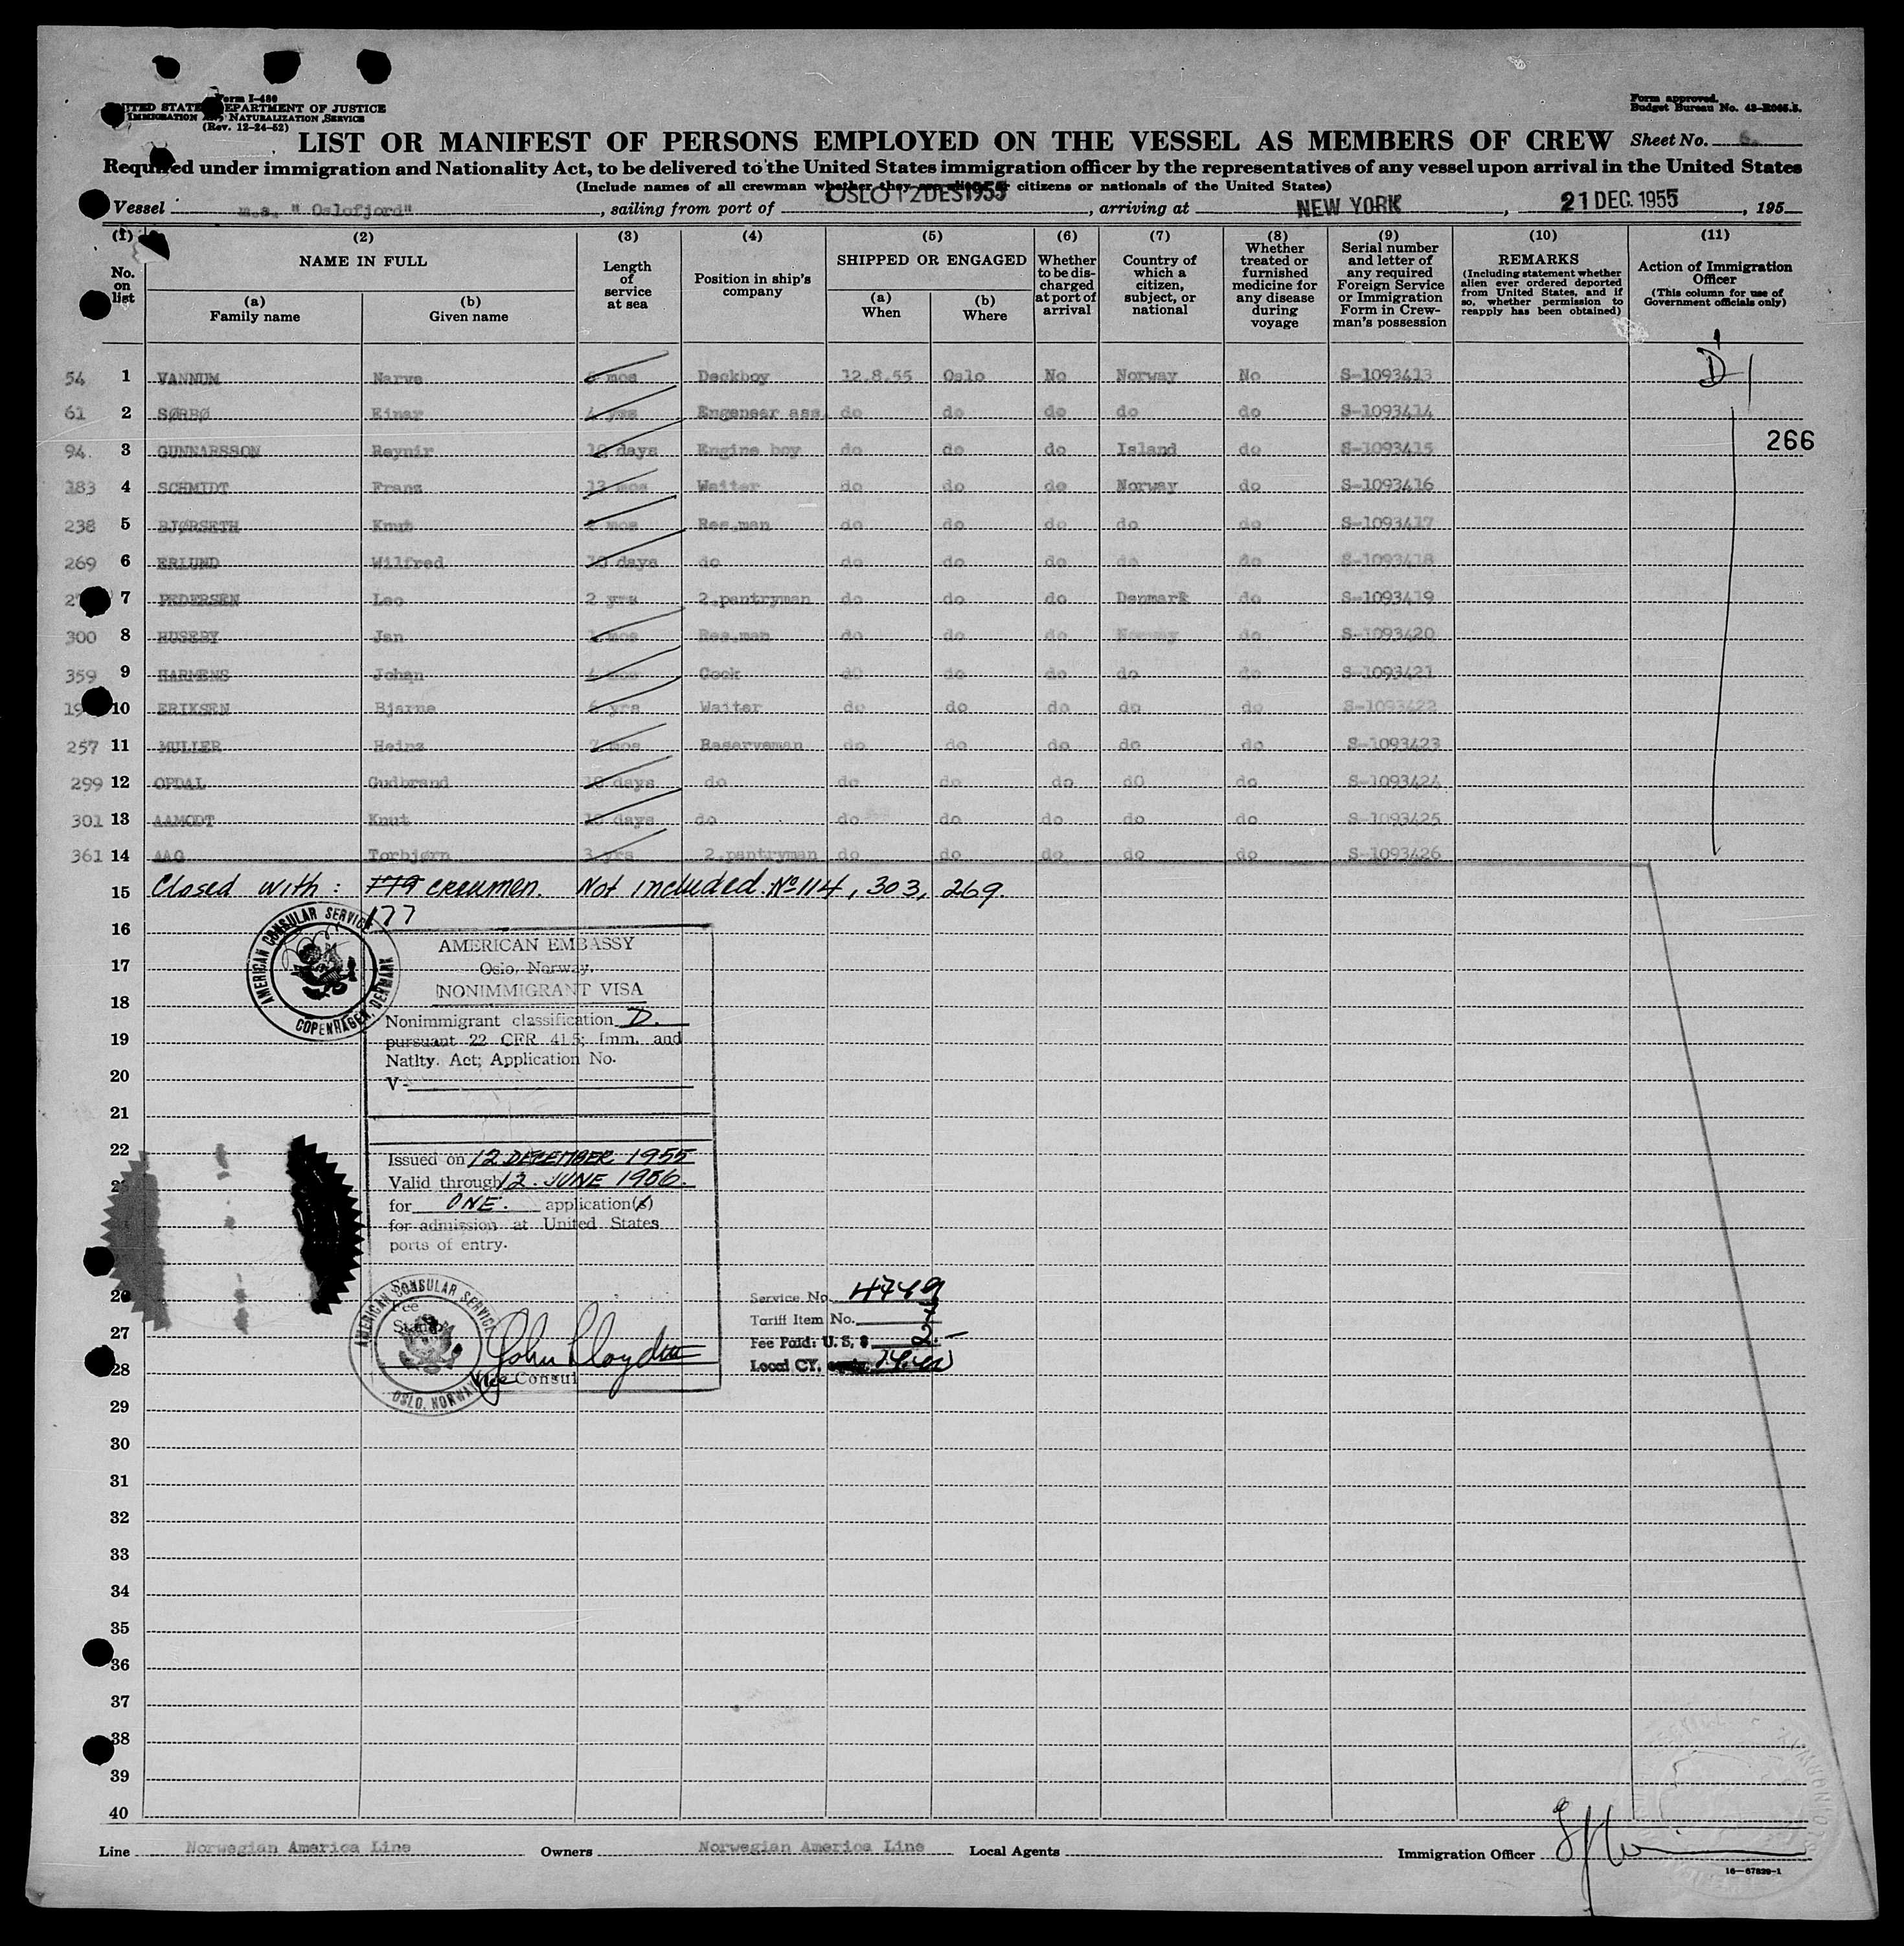 Form I-480
UNITED STATES DEPARTMENT OF JUSTICE
IMMIGRATION AND NATURALIZATION SERVICE
(Rev. 12-24-52)
Form approved.
Budget Bureau No. 43-R065.5.
LIST OR MANIFEST OF PERSONS EMPLOYED ON THE VESSEL AS MEMBERS OF CREW
Sheet No.
Required under immigration and Nationality Act, to be delivered to the United States immigration officer by the representatives of any vessel upon arrival in the United States
(Include names of all crewman whether they are aliens or citizens or nationals of the United States)
Vessel m.s. "Oslofjord", sailing from port of OSLO 12 DES 1955, arriving at NEW YORK, 21 DEC. 1955, 195
(1) (2) (3) (4) (5) (6) (7) (8) (9) (10) (11)
No. on list
NAME IN FULL
(a) Family name
(b) Given name
Length of service at sea
Position in ship's company
SHIPPED OR ENGAGED
(a) When
(b) Where
Whether to be discharged at port of arrival
Country of which a citizen, subject, or national
Whether treated or furnished medicine for any disease during voyage
Serial number and letter of any required Foreign Service or Immigration Form in Crewman's possession
REMARKS
(Including statement whether alien ever ordered deported from United States, and if so, whether permission to reapply has been obtained)
Action of Immigration Officer
(This column for use of Government officials only)
D
54 1 VANNUM Narve mos Deckboy 12.8.55 Oslo No Norway No S-1093413
61 2 SØRBØ Einar yrs Engeneer ass. do do do do do S-1093414
266
94 3 GUNNARSSON Reynir days Engine boy do do do Island do S-1093415
183 4 SCHMIDT Franz mos Waiter do do do Norway do S-1093416
238 5 BJØRSETH Knut mos Res.man do do do do do S-1093417
269 6 ERLUND Wilfred days do do do do do do S-1093418
7 PEDERSEN Leo 2 yrs 2.pantryman do do do Denmark do S-1093419
300 8 HUSEBY Jan mos Res.man do do do Norway do S-1093420
359 9 HARMENS Johan mos Cook do do do do do S-1093421
10 ERIKSEN Bjarne yrs Waiter do do do do do S-1093422
257 11 MULLER Heinz mos Reserveman do do do do do S-1093423
299 12 OPDAL Gudbrand days do do do do dO do S-1093424
301 13 AAMODT Knut days do do do do do do S-1093425
361 14 AAG Torbjørn 3 yrs 2.pantryman do do do do do S-1093426
15 Closed with: 179 crewmen. Not included. No 114, 303, 269.
177
16
17
18
19
20
21
22
AMERICAN CONSULAR SERVICE
COPENHAGEN, DENMARK
AMERICAN EMBASSY
Oslo, Norway.
NONIMMIGRANT VISA
Nonimmigrant classification D.
pursuant 22 CFR 41.5; Imm. and
Natlty. Act; Application No.
V-
Issued on 12 DECEMBER 1955
Valid through 12. JUNE 1956.
for ONE. application(s)
for admission at United States
ports of entry.
AMERICAN CONSULAR SERVICE
OSLO, NORWAY
Fee
Stamp
Vice Consul
Service No. 4749
Tariff Item No. 7
Fee Paid: U. S. $ 2.—
Local CY.
27
28
29
30
31
32
33
34
35
36
37
38
39
40
Line Norwegian America Line Owners Norwegian America Line Local Agents Immigration Officer
16—67829-1